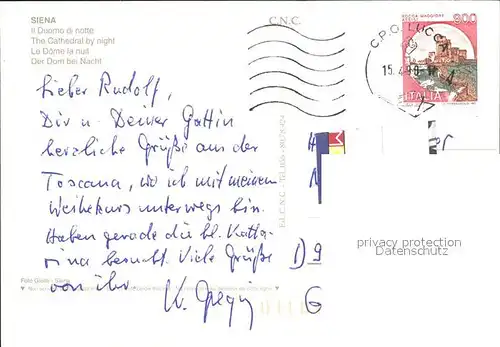 SIENA
Il Duomo di notte
The Cathedral by night
Le Dôme la nuit
Der Dom bei Nacht
C.N.C.
ROCCA MAGGIORE
ASSISI
800
ITALIA
C.P.O. LUCCA
15.4.98
Lieber Rudolf,
Dir u. Deiner Gattin
herzliche Grüße aus der
Toscana, wo ich mit meinem
Weihekurs unterwegs bin.
Haben gerade die hl. Katha-
rina besucht. Viele Grüße
von ihr.
K.
Ed. C.N.C.
privacy protection
Datenschutz